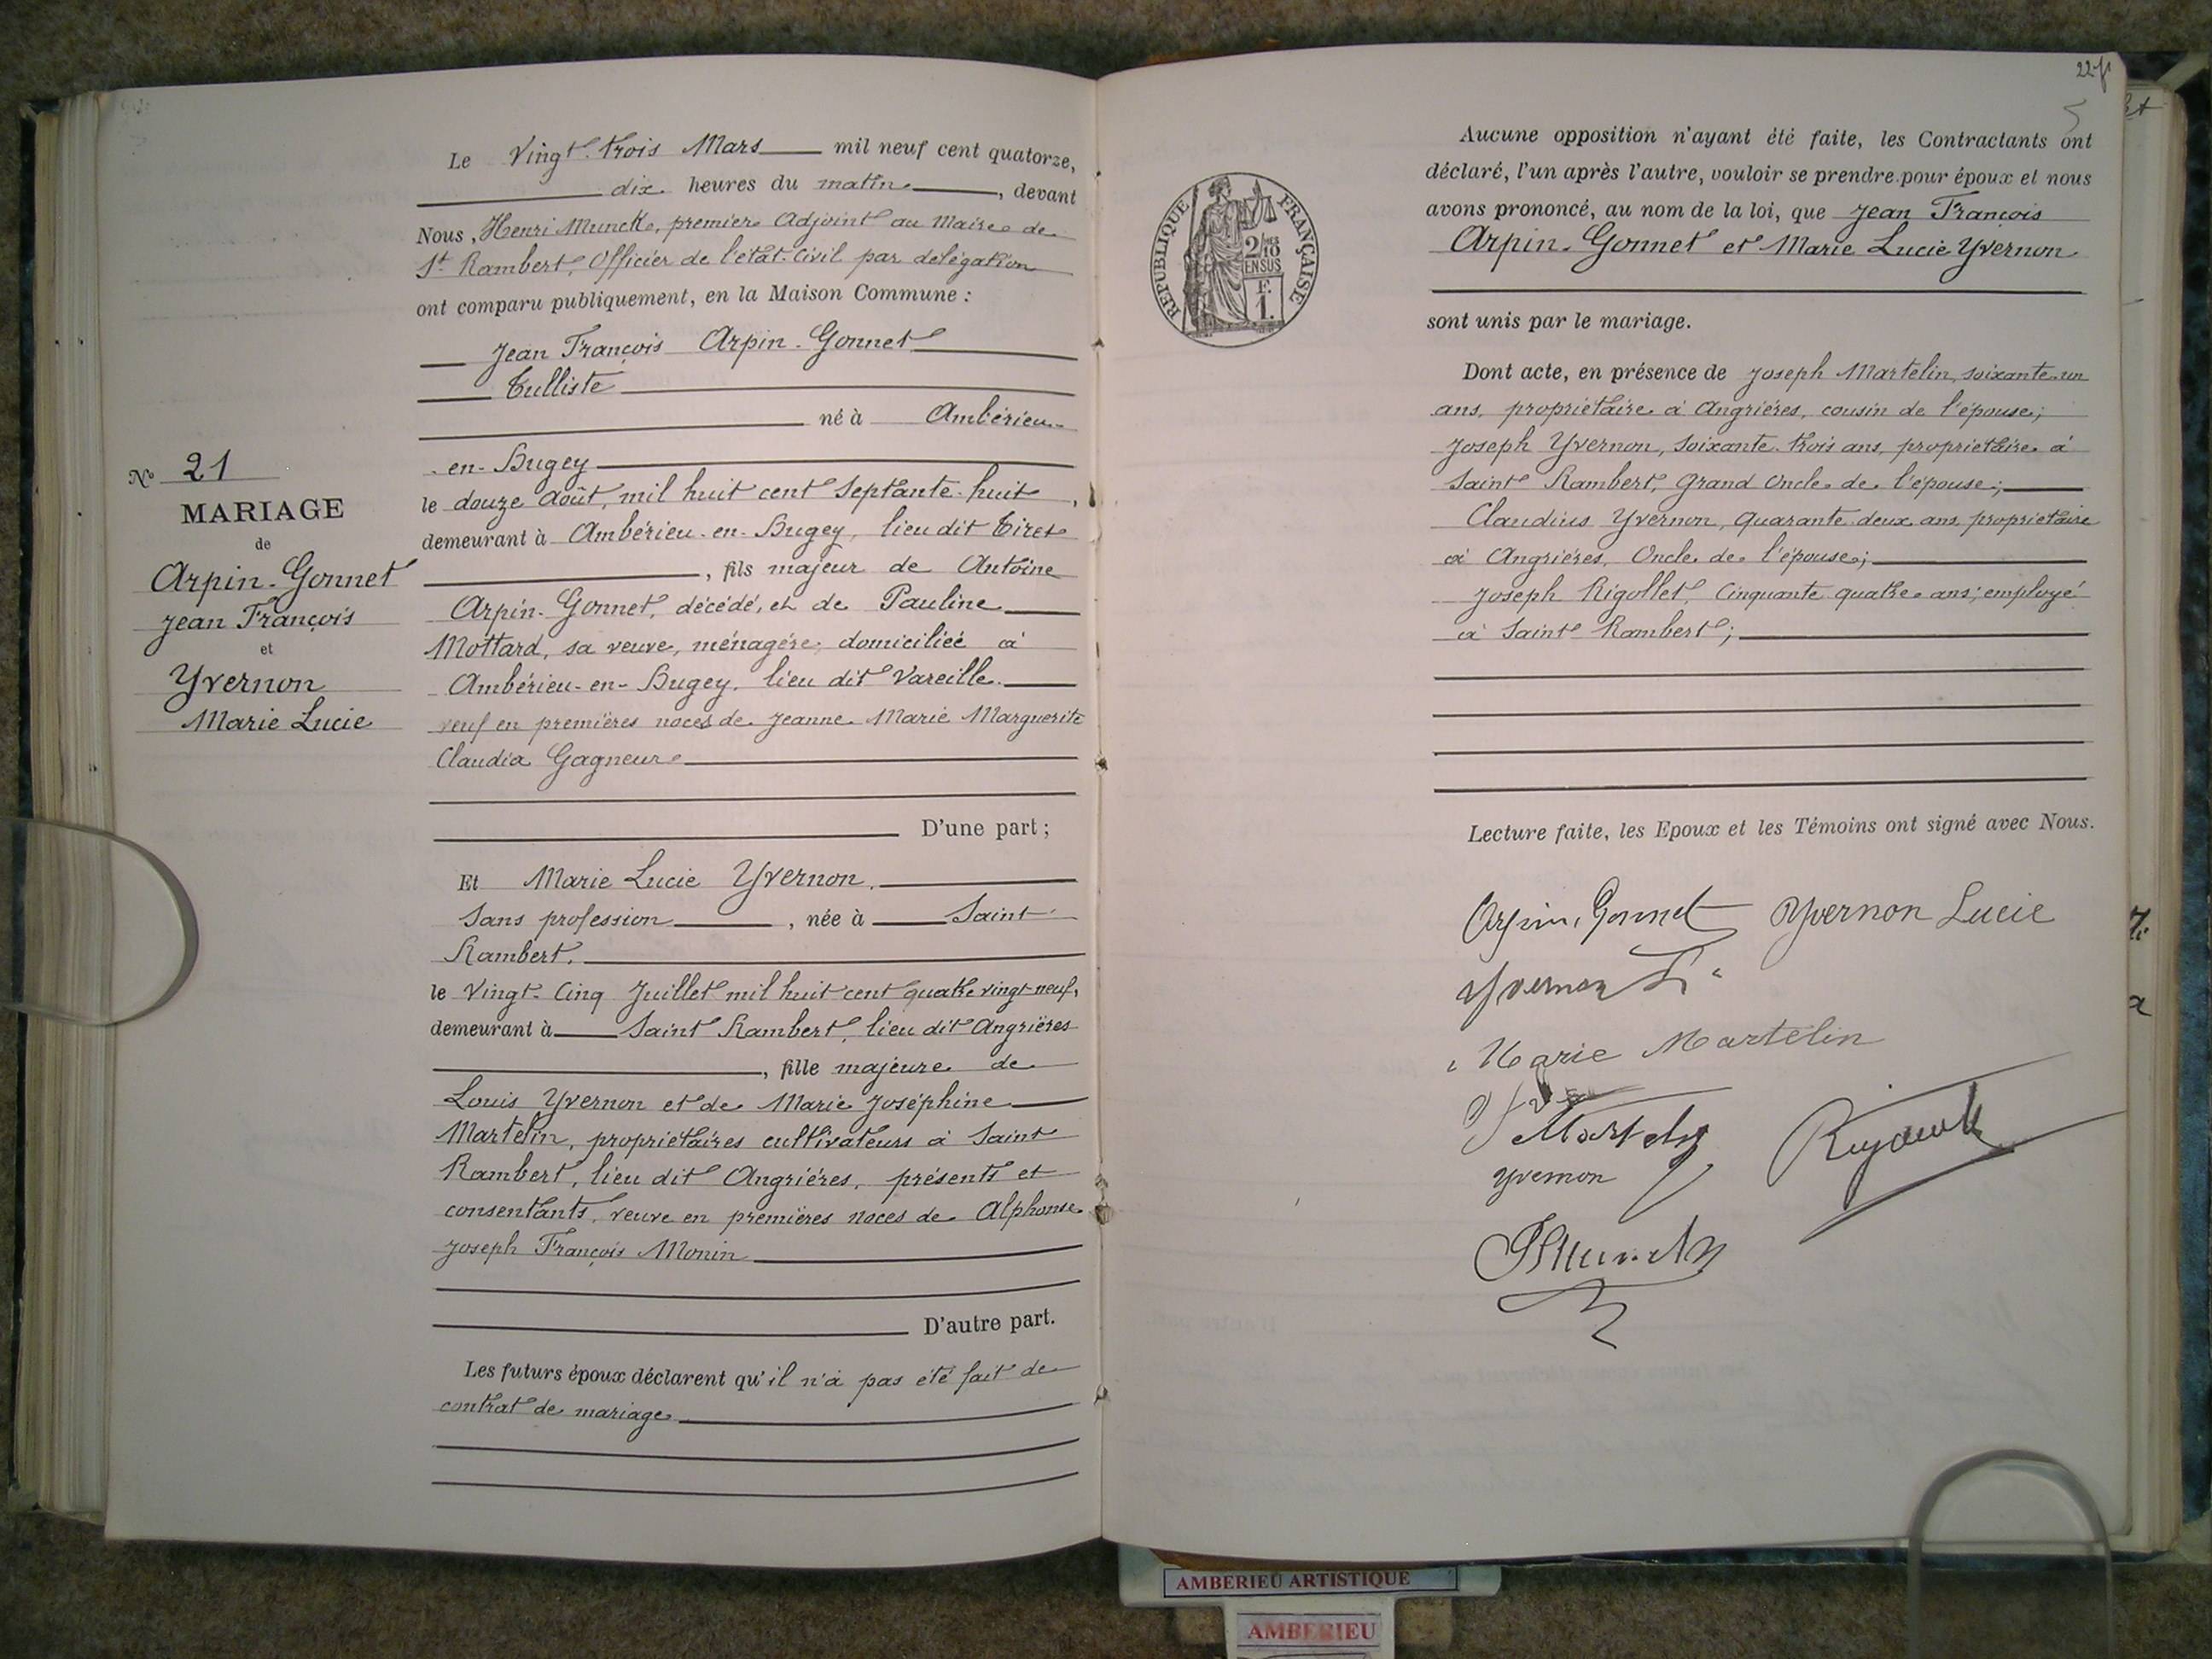 Le Vingt-trois Mars mil neuf cent quatorze,
dix heures du matin, devant
Nous, Henri Munck, premier Adjoint au Maire de
St Rambert, Officier de l'état-civil par délégation
ont comparu publiquement, en la Maison Commune :
Jean François Arpin-Gonnet
Tulliste
né à Ambérieu-
en-Bugey
le douze Août, mil huit cent septante-huit,
demeurant à Ambérieu-en-Bugey, lieu dit Tiret
, fils majeur de Antoine
Arpin-Gonnet, décédé, et de Pauline
Mottard, sa veuve, ménagère, domiciliée à
Ambérieu-en-Bugey, lieu dit Vareille.
veuf en premières noces de Jeanne Marie Marguerite
Claudia Gagneur
D'une part ;
Et Marie Lucie Yvernon.
Sans profession, née à Saint
Rambert.
le Vingt-Cinq Juillet mil huit cent quatre vingt-neuf,
demeurant à Saint Rambert, lieu dit Angrières
, fille majeure de
Louis Yvernon et de Marie Joséphine
Martelin, propriétaires cultivateurs à Saint
Rambert, lieu dit Angrières, présents et
consentants, veuve en premières noces de Alphonse
Joseph François Monin
D'autre part.
Les futurs époux déclarent qu'il n'a pas été fait de
contrat de mariage
No 21
MARIAGE
de
Arpin-Gonnet
Jean François
et
Yvernon
Marie Lucie
REPUBLIQUE FRANÇAISE
2/10
EN SUS
F.
1.
Aucune opposition n'ayant été faite, les Contractants ont
déclaré, l'un après l'autre, vouloir se prendre pour époux et nous
avons prononcé, au nom de la loi, que Jean François
Arpin-Gonnet et Marie Lucie Yvernon
sont unis par le mariage.
Dont acte, en présence de Joseph Martelin, soixante-un
ans, propriétaire à Angrières, cousin de l'épouse;
Joseph Yvernon, soixante-trois ans, propriétaire à
Saint Rambert, Grand Oncle de l'épouse;
Claudius Yvernon, Quarante deux ans, propriétaire
à Angrières, Oncle de l'épouse;
Joseph Rigollet, Cinquante quatre ans, employé
à Saint Rambert;
Lecture faite, les Epoux et les Témoins ont signé avec Nous.
Arpin-Gonnet Yvernon Lucie
Yvernon
Marie Martelin
Yvernon
AMBERIEU ARTISTIQUE
AMBERIEU